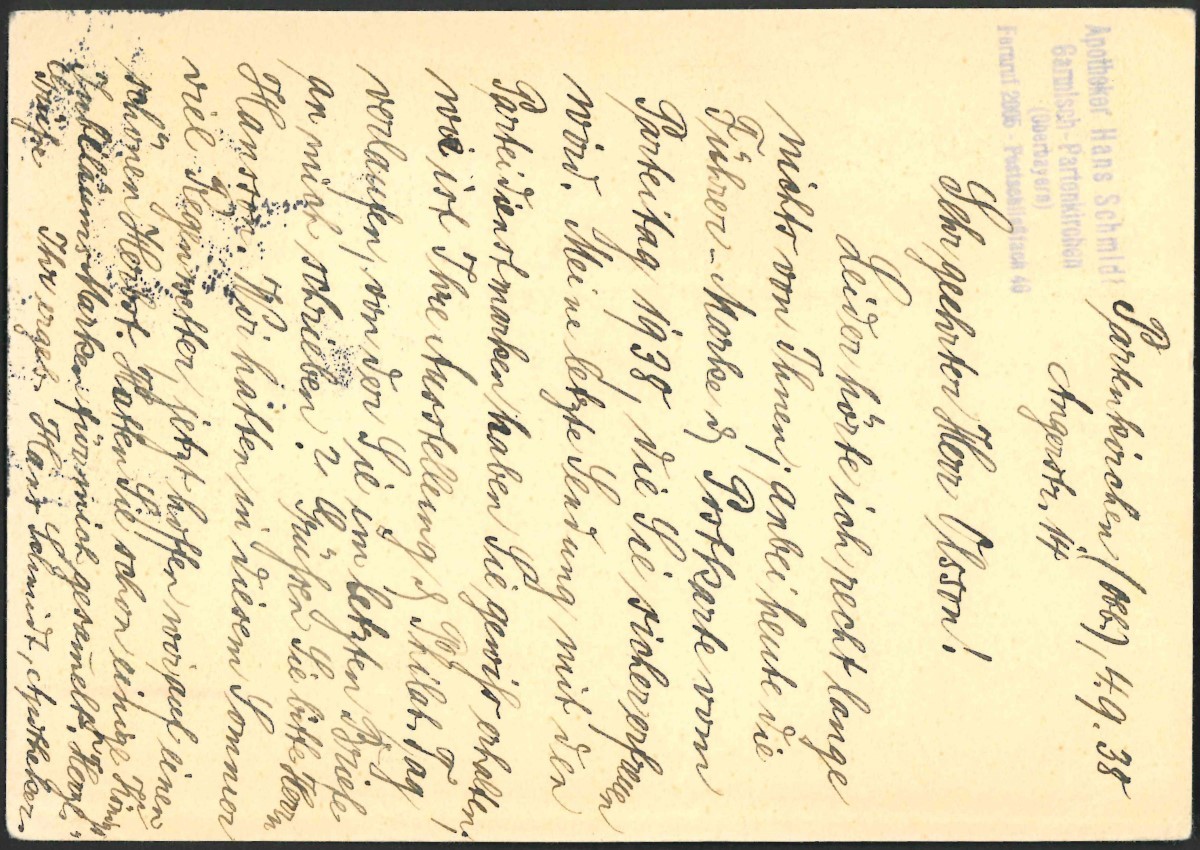 Apotheker Hans Schmidt
Garmisch-Partenkirchen
(Oberbayern)
Fernruf 2906 - Postschließfach 46
Partenkirchen (Obb), 4.9.38
Angerstr. 14
Sehr geehrter Herr Olsson!
Leider hörte ich recht lange
nichts von Ihnen; anbei heute die
Führer-Marke & Postkarte vom
Parteitag 1938, die Sie sicher erfreuen
wird. Meine letzte Sendung mit den
Parteidienstmarken haben Sie gewiß erhalten,
wie ist Ihre Ausstellung & Philat. Tag
verlaufen, von der Sie im letzten Briefe
an mich schrieben? Grüßen Sie bitte Herrn
Hansson. Wir hatten in diesem Sommer
viel Regenwetter, jetzt hoffen wir auf einen
schönen Herbst. Haben Sie schon einige
Jubiläums Marken für mich gesammelt. Herzl.
Grüße Ihr ergeb. Hans Schmidt, Apotheker.